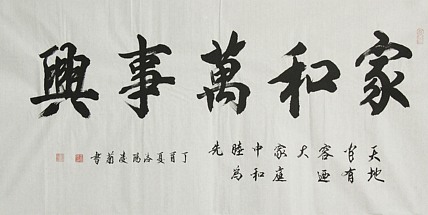 家和萬事興
天地
有
容廼
大
家庭
中和
睦為
先
丁酉夏洛陽凌書